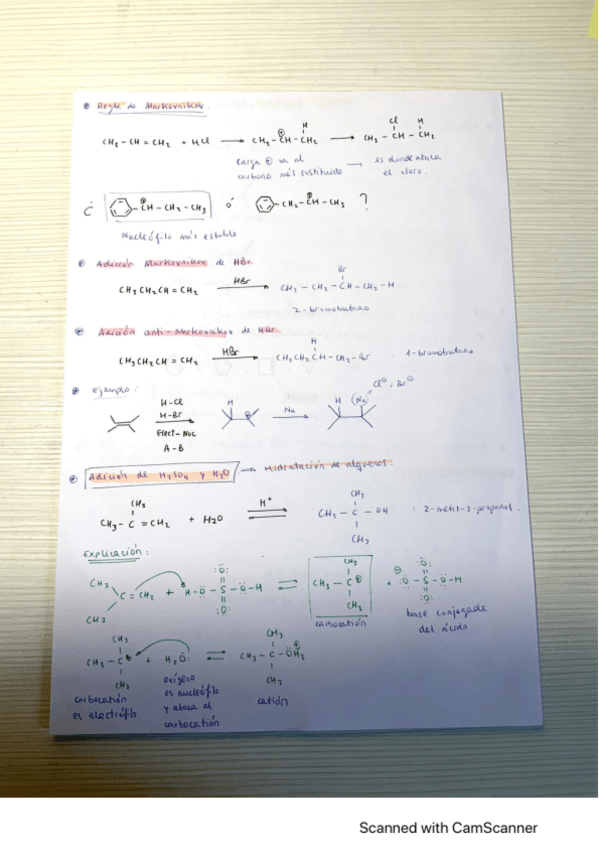 Regla de Markovnikov.
CH₃ – CH = CH₂ + HCl ⟶ CH₃ – CH⊕ – CH₂ – H ⟶ CH₃ – CH(Cl) – CH₂ – H
carga ⊕ va al carbono más sustituido ⟶ es donde ataca el cloro.
¿ ⊕CH – CH₂ – CH₃ ó – CH₂ – ⊕CH – CH₃ ?
Nucleófilo más estable
Adición Markovnikov de HBr.
CH₃ CH₂ CH = CH₂ HBr ⟶ CH₃ – CH₂ – CH(Br) – CH₂ – H
2-bromobutano
Adición anti-Markovnikov de HBr.
CH₃ CH₂ CH = CH₂ HBr ⟶ CH₃ CH₂ CH(H) – CH₂ – Br : 1-bromobutano
ejemplo: Cl⊖, Br⊖
H-Cl
H-Br
Elect-Nuc
A-B
H ⊕ Nu H (Nu)
Adición de H₂SO₄ y H₂O ⟶ Hidratación de alquenos:
CH₃
CH₃ – C = CH₂ + H₂O H⁺ ⇌ CH₃ – C – OH : 2-metil-2-propanol.
CH₃
CH₃
Explicación:
CH₃
CH₃ C = CH₂ + H – O – S – O – H ⇌ CH₃ – C⊕ + ⊖ O – S – O – H
:O: :O: CH₃ CH₃ :O: :O:
carbocatión
base conjugada del ácido
CH₃ CH₃
CH₃ – C⊕ + H₂O: ⇌ CH₃ – C – OH₂⊕
CH₃ CH₃
carbocatión es electrófilo
oxígeno es nucleófilo y ataca al carbocatión
catión
Scanned with CamScanner